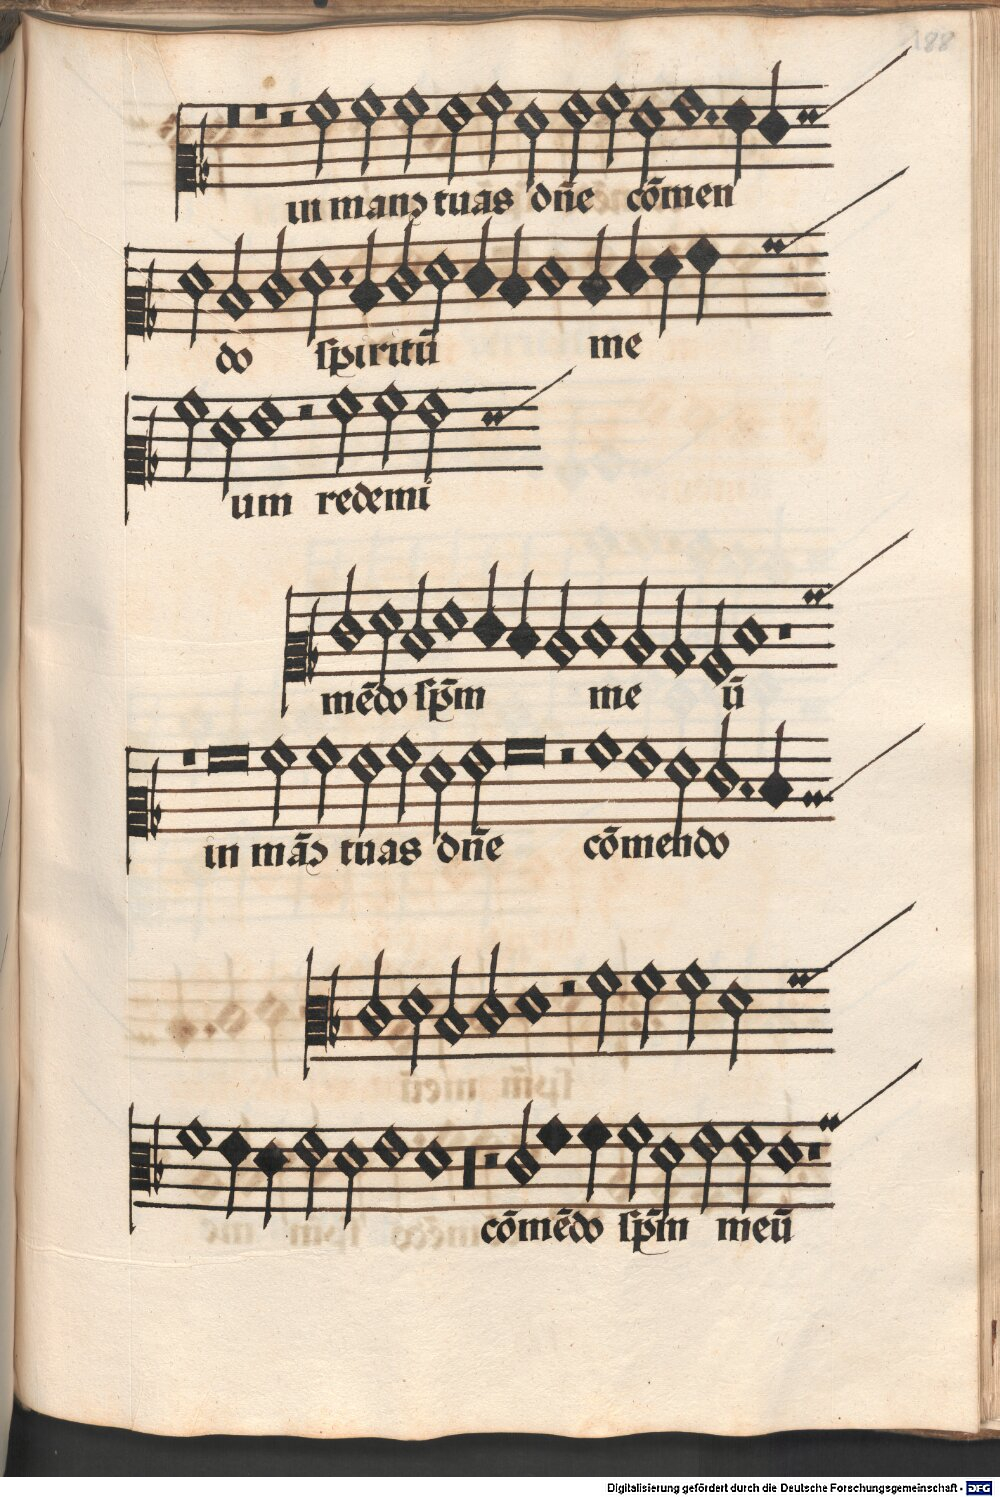 188
in manꝰ tuas dn̄e cōmen
do spiritū me
um redemi
mēdo sp̄m me ū
in māꝰ tuas dn̄e cōmendo
cōmēdo sp̄m meū
Digitalisierung gefördert durch die Deutsche Forschungsgemeinschaft - DFG